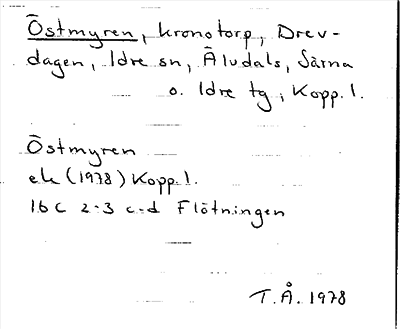 Östmyren, kronotorp, Drev-
dagen, Idre sn, Äludals, Särna
o. Idre tg, Kopp. l.
Östmyren
ek (1978) Kopp. l.
16 C 2-3 c-d Flötningen
T. Å. 1978